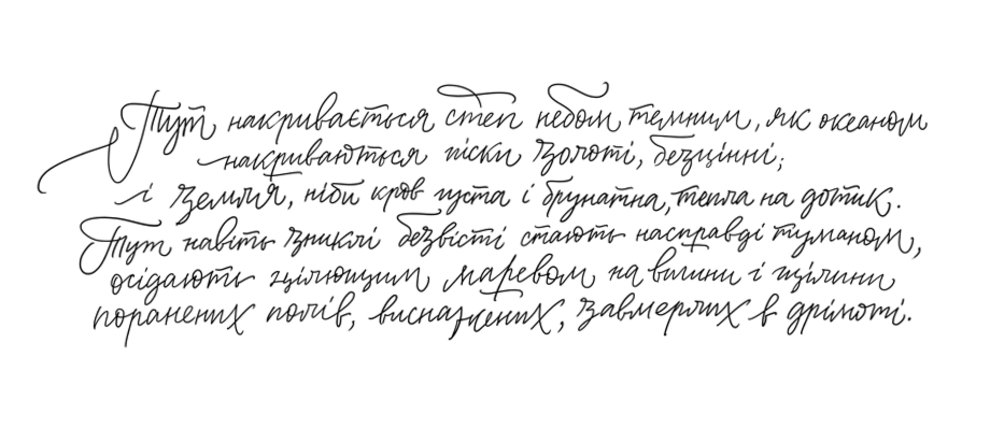 Тут накривається степ небом темним, як океаном
накриваються піски золоті, безцінні;
і земля, ніби кров густа і брунатна, тепла на дотик.
Тут навіть зниклі безвісті стають насправді туманом,
осідають зцілюющим маревом на вишини і щілини
поранених полів, виснажених, завмерлих в дрімоті.